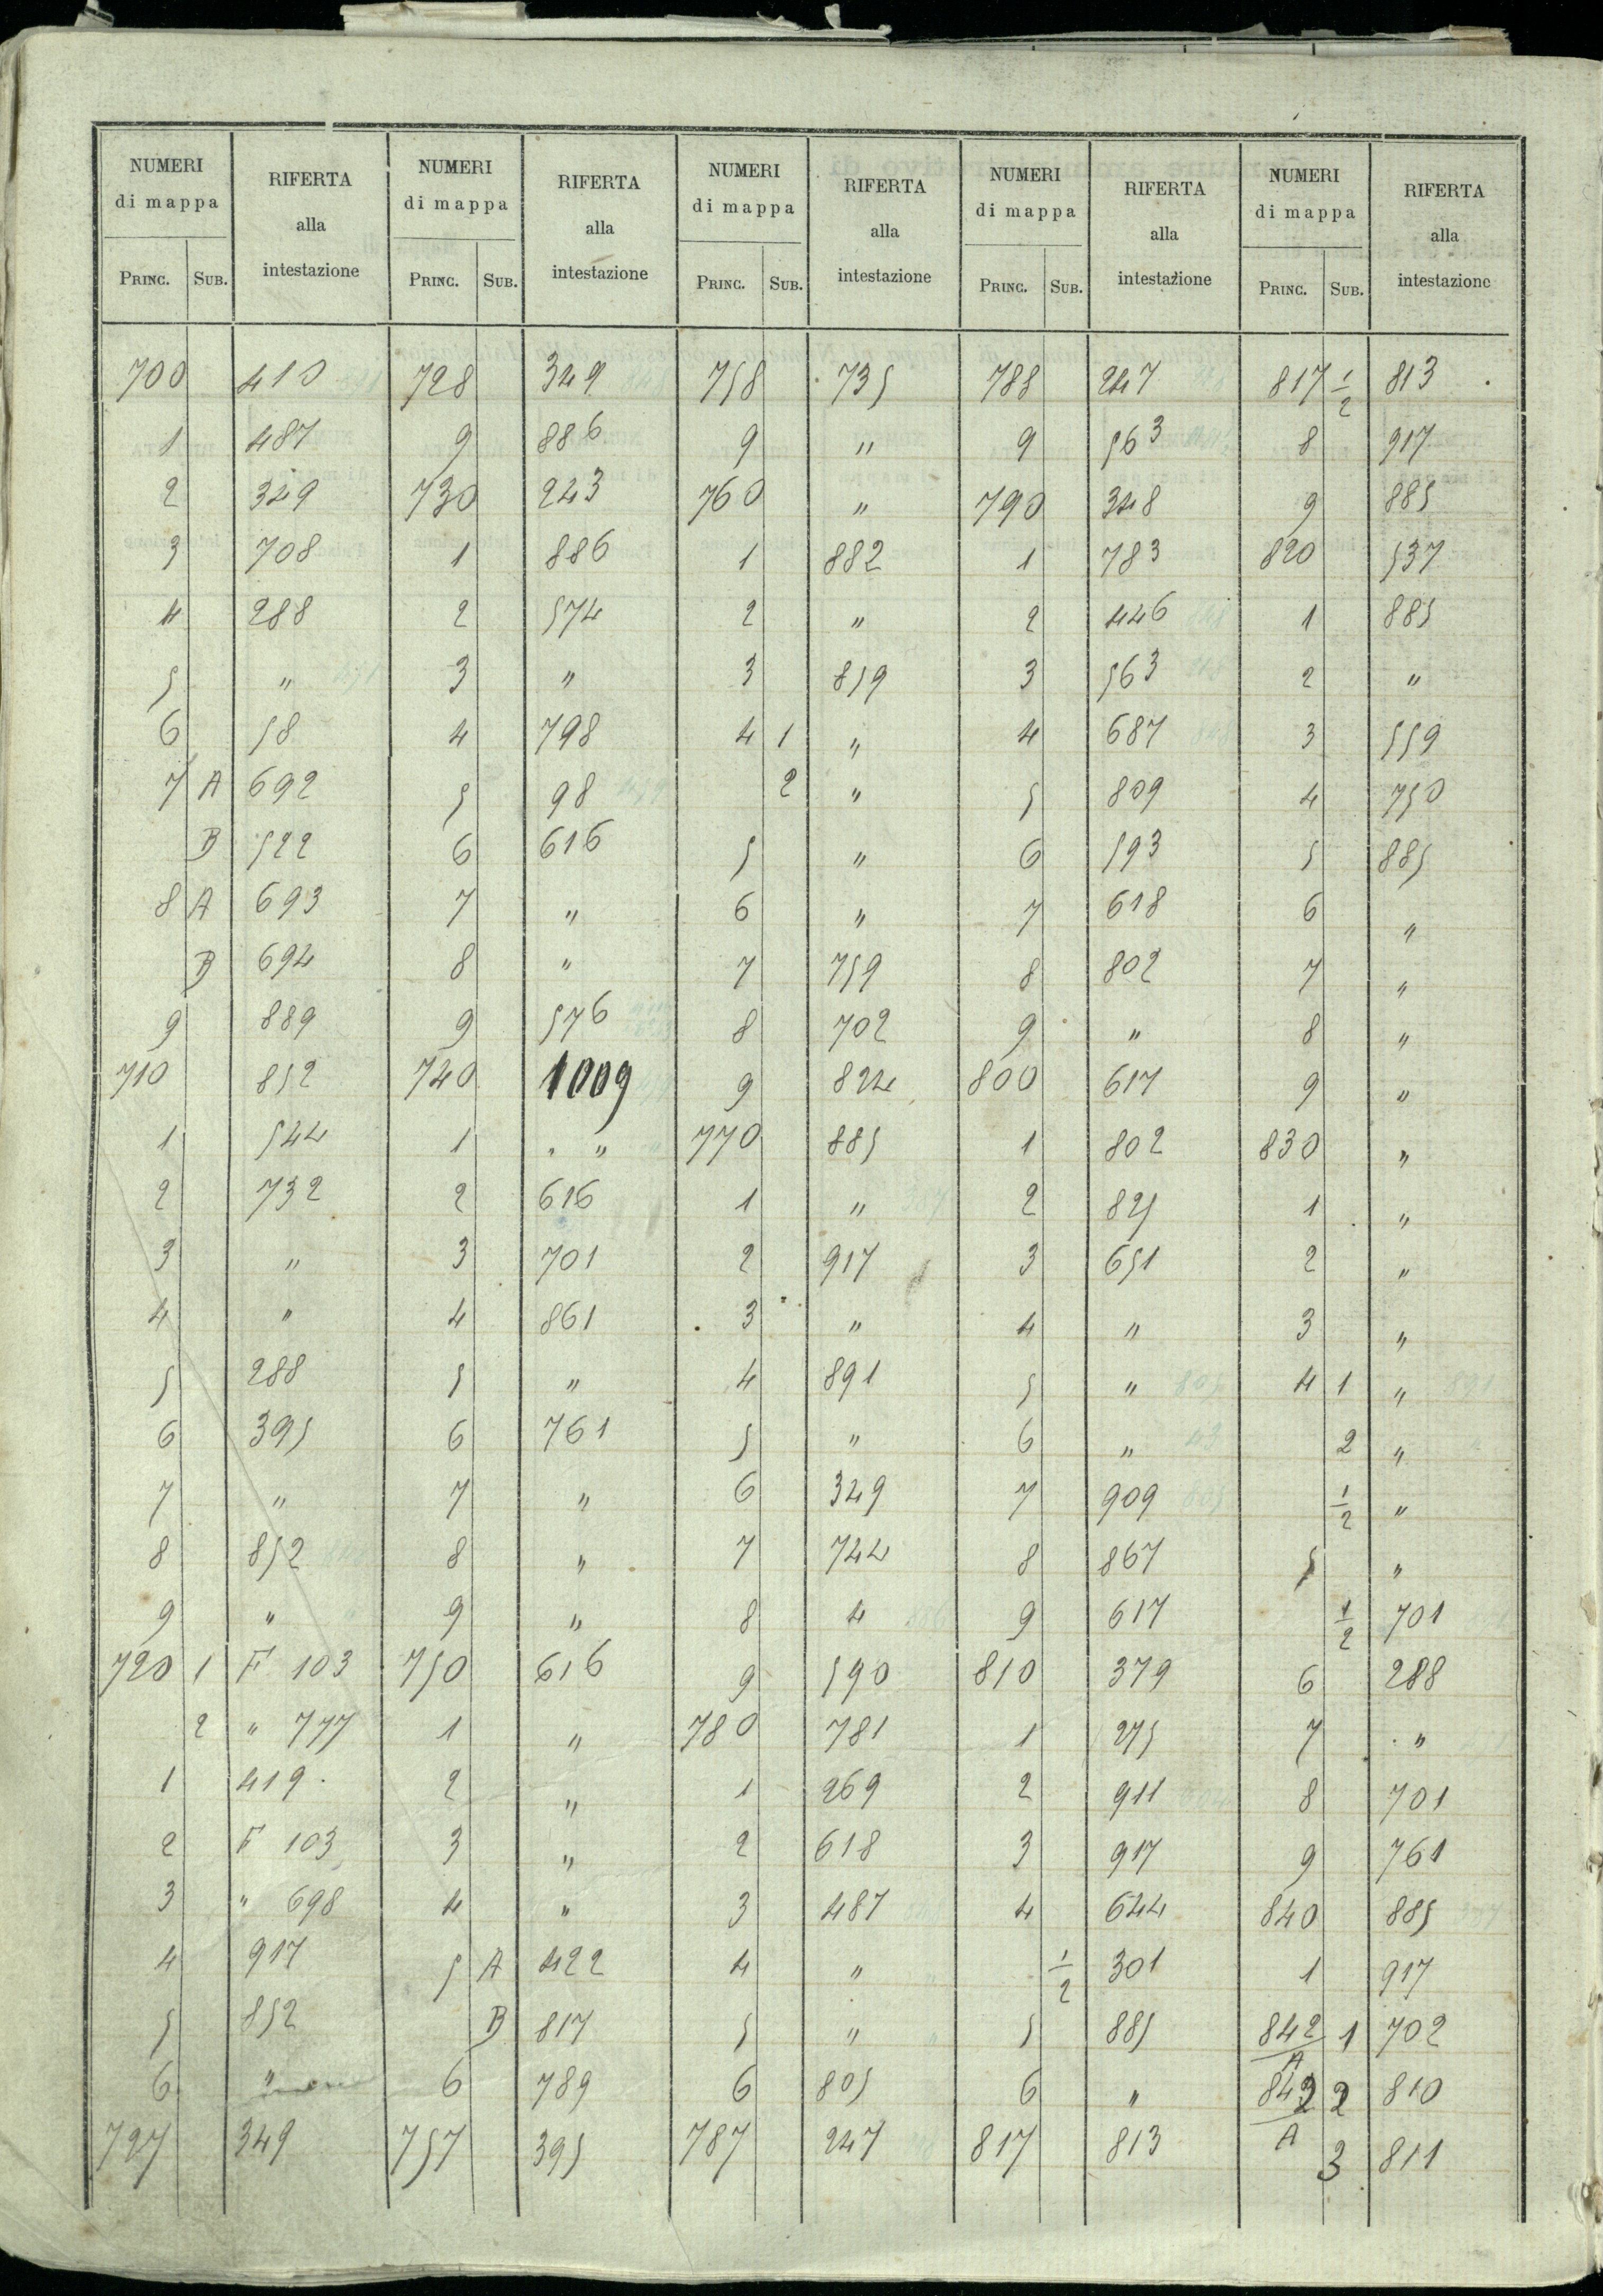 NUMERI di mappa RIFERTA alla intestazione NUMERI di mappa RIFERTA alla intestazione NUMERI di mappa RIFERTA alla intestazione NUMERI di mappa RIFERTA alla intestazione NUMERI di mappa RIFERTA alla intestazione
PRINC. SUB. PRINC. SUB. PRINC. SUB. PRINC. SUB. PRINC. SUB.
700 410 728 349 758 735 788 247 817 1/2 813
1 487 9 886 9 " 9 563 8 917
2 349 730 243 760 " 790 348 9 885
3 708 1 886 1 882 1 783 820 537
4 288 2 574 2 " 2 446 1 885
5 " 3 " 3 859 3 563 2 "
6 58 4 798 4 1 " 4 687 3 559
7 A 692 5 98 2 " 5 809 4 750
B 522 6 616 5 " 6 593 5 885
8 A 693 7 " 6 " 7 618 6 "
B 694 8 " 7 759 8 802 7 "
9 889 9 576 8 702 9 " 8 "
710 852 740 1009 9 824 800 617 9 "
1 544 1 " 770 885 1 802 830 "
2 732 2 616 1 " 2 825 1 "
3 " 3 701 2 917 3 651 2 "
4 " 4 861 3 " 4 " 3 "
5 288 5 " 4 891 5 " 4 1 "
6 395 6 761 5 " 6 " 2 "
7 " 7 " 6 349 7 909 1/2 "
8 852 8 " 7 744 8 867 5 "
9 " 9 " 8 4 9 617 1/2 701
720 1 F 103 750 616 9 590 810 379 6 288
2 " 777 1 " 780 781 1 275 7 "
1 419 2 " 1 269 2 911 8 701
2 F 103 3 " 2 618 3 917 9 761
3 " 698 4 " 3 487 4 644 840 885
4 917 5 A 422 4 " 1/2 301 1 917
5 852 B 817 5 " 5 885 842/A 1 702
6 " 6 789 6 805 6 " 842/A 2 810
727 349 757 395 787 247 817 813 3 811